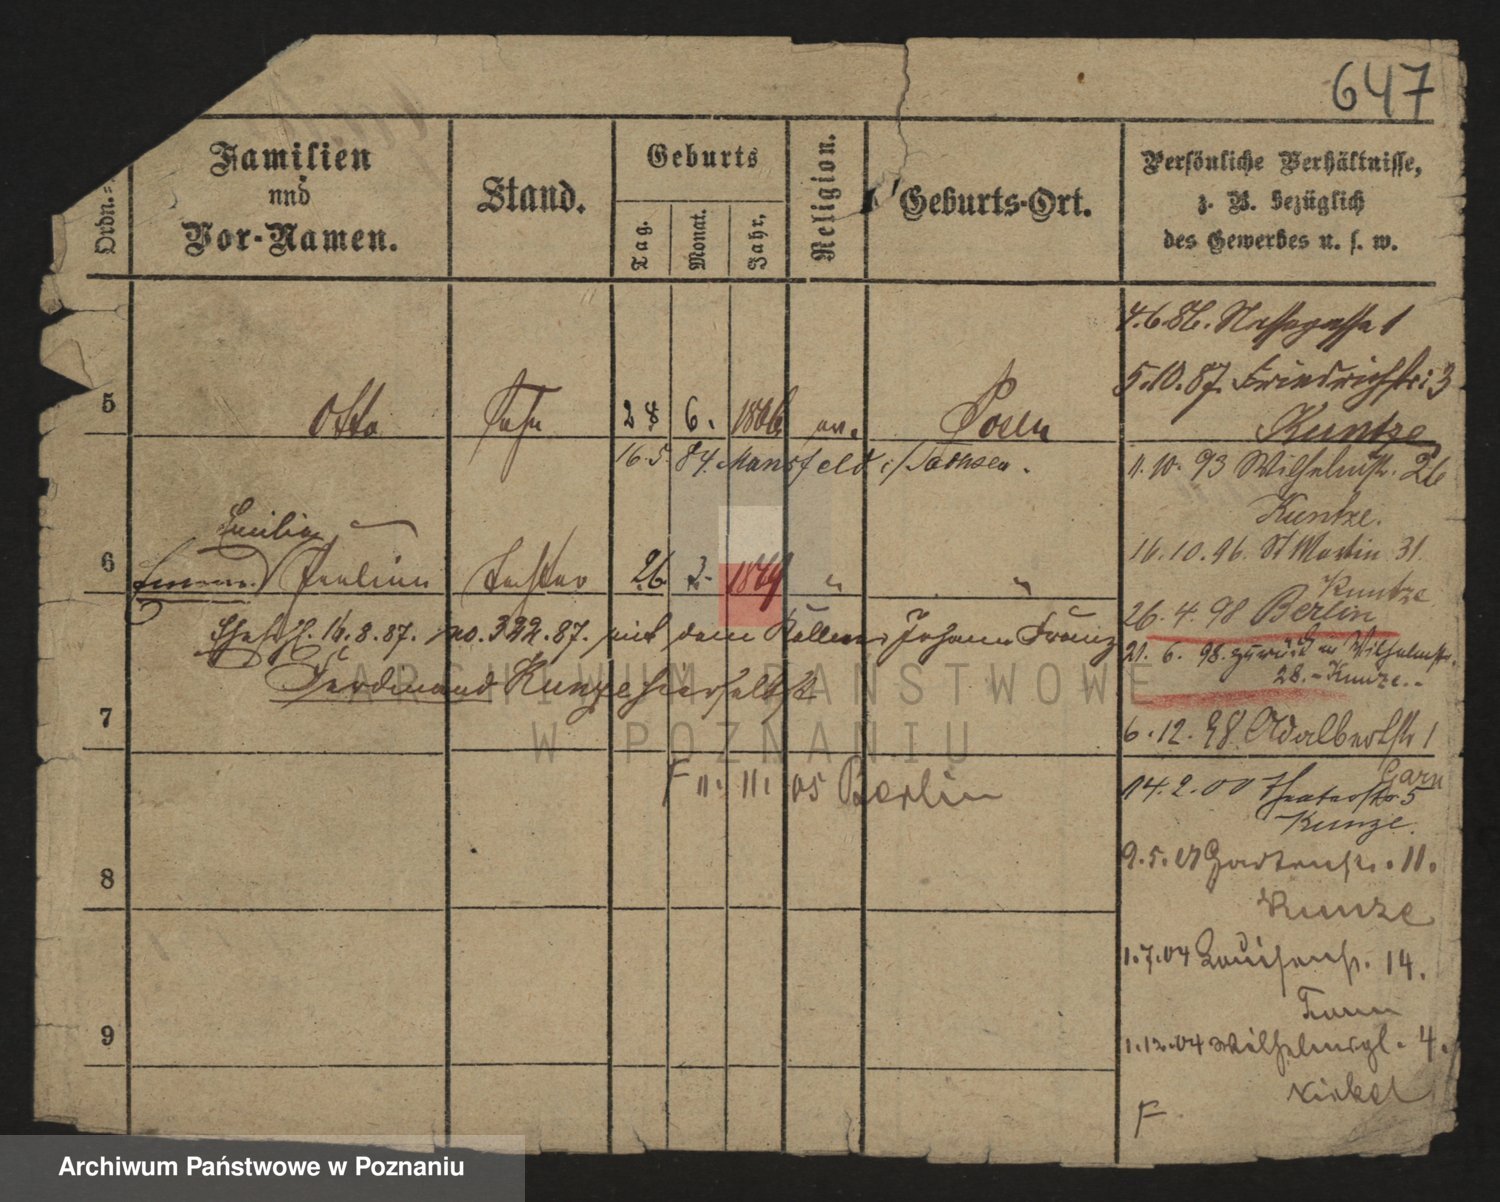 647
Ordn.=
Familien
und
Vor-Namen.
Stand.
Geburts
Tag.
Monat.
Jahr.
Religion.
Geburts-Ort.
Persönliche Verhältnisse,
z. B. bezüglich
des Gewerbes u. s. w.
4.6.86.
5.10.87. Friedrichstr. 3
Kuntze
5 Otto Sohn 28 6. 1866 ev. Posen
16.5.84. Mansfeld i/Sachsen.
11.10.93 Wilhelmstr. 26
Kuntze.
16.10.96. St Martin 31
Kuntze
Emilie
6 Pauline Tochter 26 2. " "
26.4.98 Berlin
16.8.87. no. 322.87. mit dem Kellner Johann Franz
Ferdinand Kunze hierselbst
21.6.98. zurück Wilhelmstr.
28. - Kunze. -
7
6.12.98 Adalbertstr 1
F 11. 11. 05 Berlin
14.2.00 Theaterstr 5
Kunze.
8
Gartenstr. 11.
Kunze
1.7.04 Louisenstr. 14.
9
1.12.04 Wilhelmspl. 4.
F
ARCHIWUM PAŃSTWOWE
W POZNANIU
Archiwum Państwowe w Poznaniu